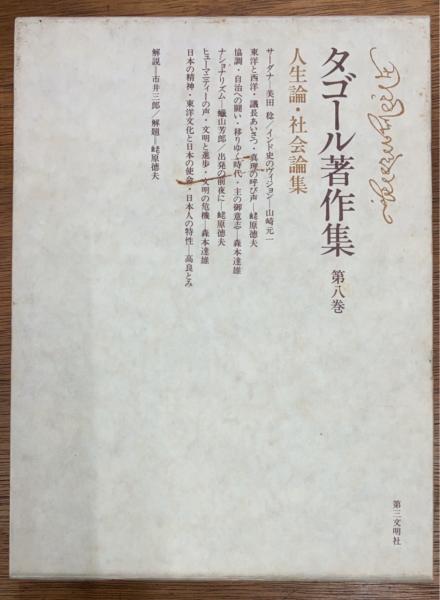 タゴール著作集 第八巻
人生論・社会論集
サーダナ―美田 稔/インド史のヴィジョン―山崎元一
東洋と西洋・議長あいさつ・真理の呼び声―蛯原徳夫
協調・自治への闘い・移りゆく時代・主の御意志―森本達雄
ナショナリズム―蠟山芳郎/出発の前夜に―蛯原徳夫
ヒューマニティーの声・文明と進歩・文明の危機―森本達雄
日本の精神・東洋文化と日本の使命・日本人の特性―高良とみ
解説―市井三郎/解題―蛯原徳夫
第三文明社